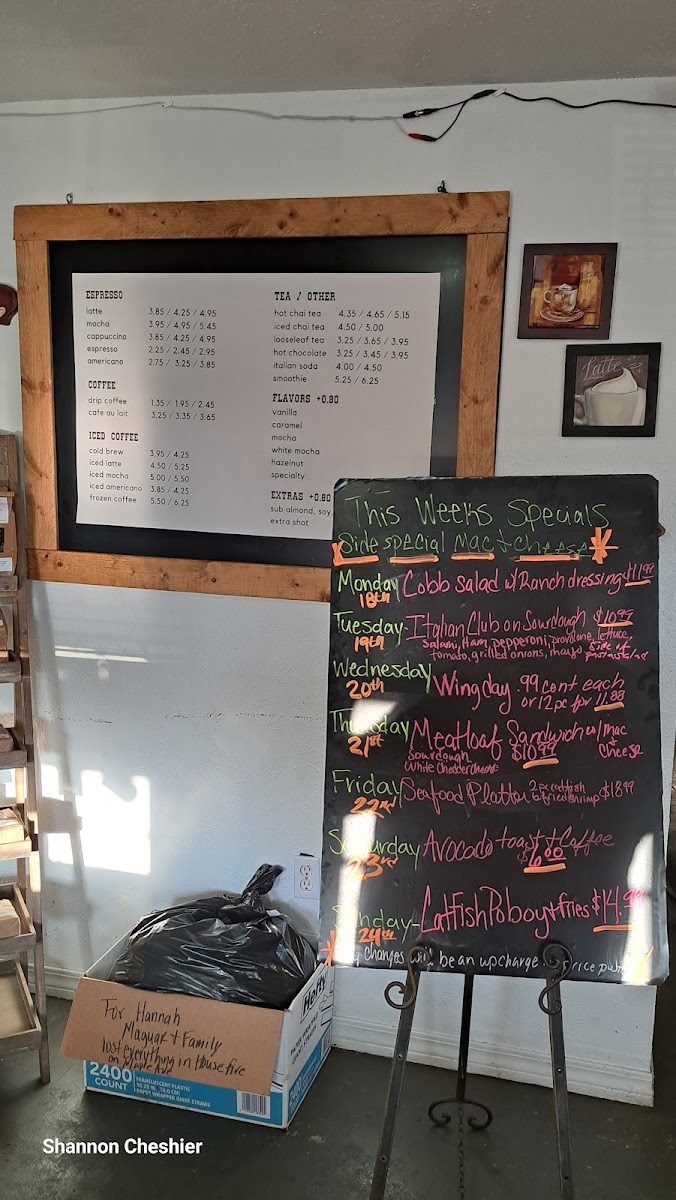 ESPRESSO
latte 3.85 / 4.25 / 4.95
mocha 3.95 / 4.95 / 5.45
cappuccino 3.85 / 4.25 / 4.95
espresso 2.25 / 2.45 / 2.95
americano 2.75 / 3.25 / 3.85
COFFEE
drip coffee 1.35 / 1.95 / 2.45
cafe au lait 3.25 / 3.35 / 3.65
ICED COFFEE
cold brew 3.95 / 4.25
iced latte 4.50 / 5.25
iced mocha 5.00 / 5.50
iced americano 3.85 / 4.25
frozen coffee 5.50 / 6.25
TEA / OTHER
hot chai tea 4.35 / 4.65 / 5.15
iced chai tea 4.50 / 5.00
looseleaf tea 3.25 / 3.65 / 3.95
hot chocolate 3.25 / 3.45 / 3.95
italian soda 4.00 / 4.50
smoothie 5.25 / 6.25
FLAVORS +0.80
vanilla
caramel
mocha
white mocha
hazelnut
specialty
EXTRAS +0.80
sub almond, soy,
extra shot
Latte
This Weeks Specials
Side special mac + cheese
Monday Cobb salad w/ Ranch dressing $11.99
18th
Tuesday- Italian Club on Sourdough $10.99
19th Salami, Ham, pepperoni, provolone, lettuce,
tomato, grilled onions, mayo side of
Wednesday Wing day .99 cent each
20th or 12 pc for 11.88
Thursday Meatloaf Sandwich w/ mac
21st Sourdough $10.99 + Cheese
White Cheddar cheese
Friday Seafood Platter 2 pc catfish
22nd 6 fried shrimp $18.99
Saturday Avocado toast + Coffee
23rd $6.00
Sunday- Catfish Poboy + fries $14.99
24th
changes will be an upcharge
For Hannah
Maguar + Family
lost everything in House fire
on
Hefty
2400
COUNT
TRANSLUCENT PLASTIC
PAPER WRAPPED GIANT STRAWS
Shannon Cheshier